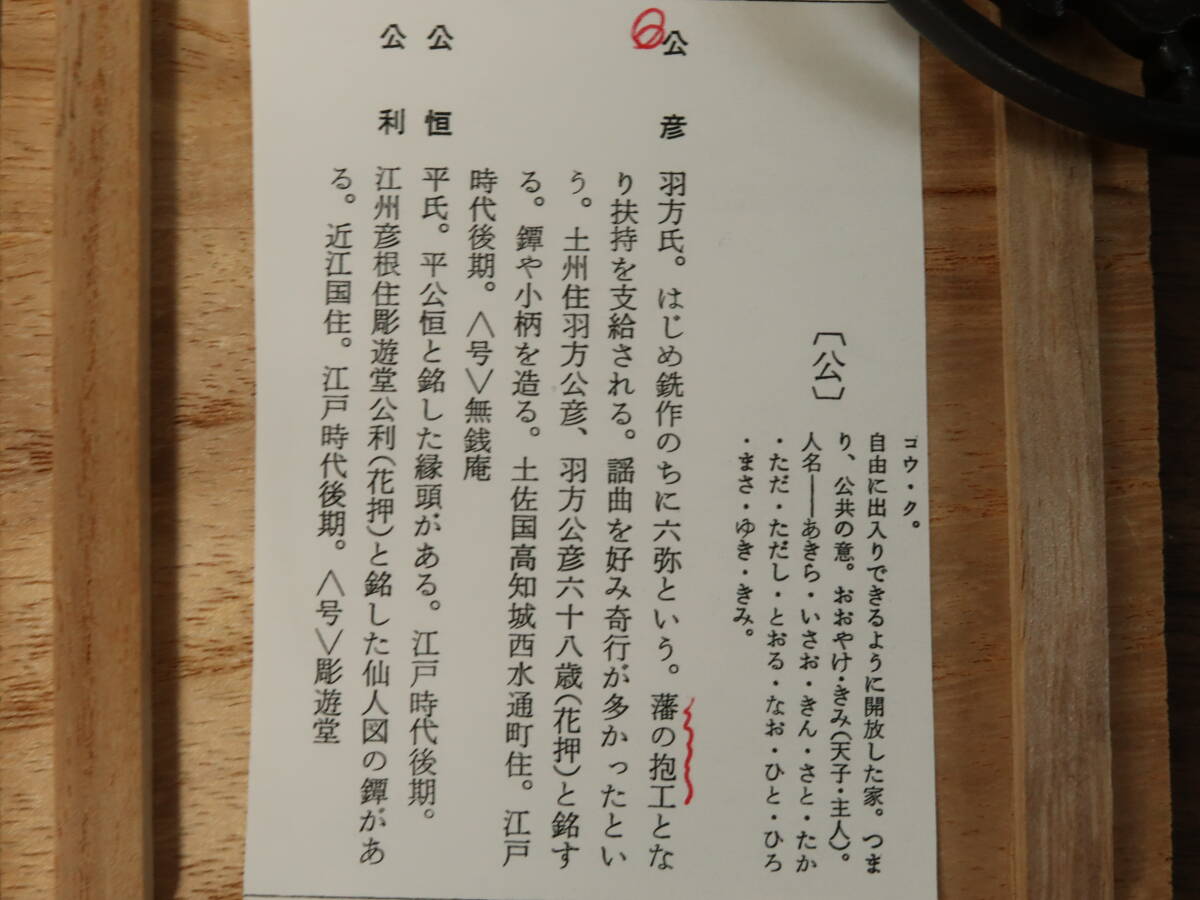 〔公〕
コウ・ク。
自由に出入りできるように開放した家。つま
り、公共の意。おおやけ・きみ(天子・主人)。
人名――あきら・いさお・きん・さと・たか
・ただ・ただし・とおる・なお・ひと・ひろ
・まさ・ゆき・きみ。
公彦 羽方氏。はじめ銑作のちに六弥という。藩の抱工とな
り扶持を支給される。謡曲を好み奇行が多かったとい
う。土州住羽方公彦、羽方公彦六十八歳(花押)と銘す
る。鐔や小柄を造る。土佐国高知城西水通町住。江戸
時代後期。〈号〉無銭庵
公恒 平氏。平公恒と銘した縁頭がある。江戸時代後期。
公利 江州彦根住彫遊堂公利(花押)と銘した仙人図の鐔があ
る。近江国住。江戸時代後期。〈号〉彫遊堂